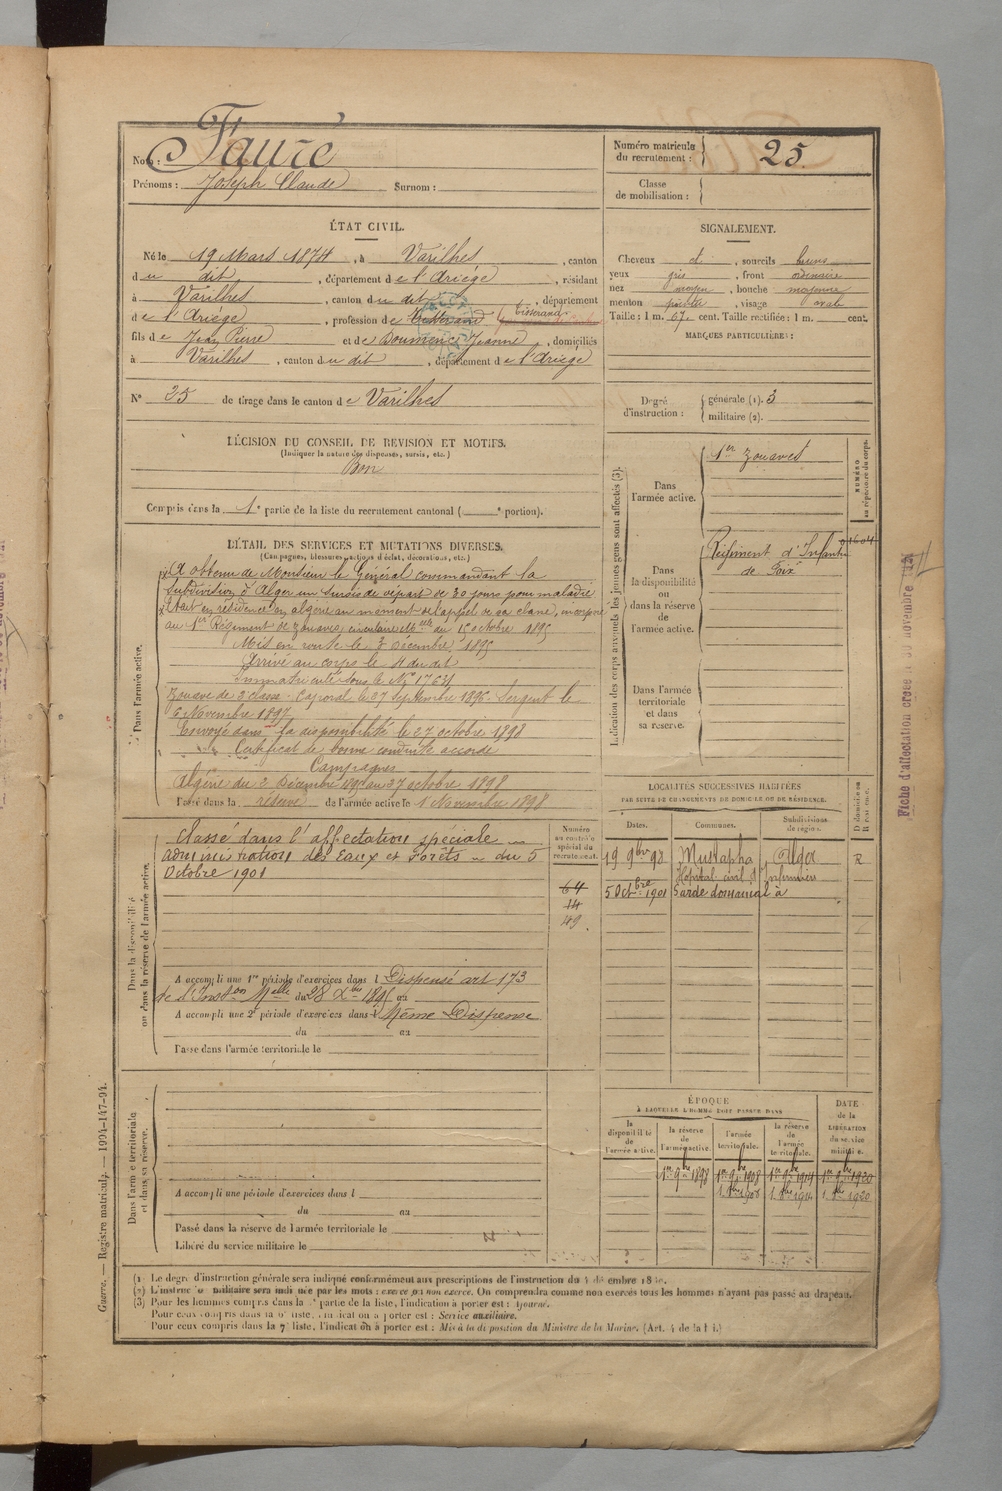 Nom : Fauré
Prénoms : Joseph Claude Surnom :
Numéro matricule du recrutement : 25
Classe de mobilisation :
ÉTAT CIVIL.
Né le 19 Mars 1874, à Varilhes, canton
du dit, département de l'Ariège, résidant
à Varilhes, canton du dit, département
de l'Ariège, profession de Tisserand
fils de Jean Pierre et de Doumenc Jeanne, domiciliés
à Varilhes, canton du dit, département de l'Ariège
N° 25 de tirage dans le canton de Varilhes
SIGNALEMENT.
Cheveux et, sourcils bruns
yeux gris, front ordinaire
nez moyen, bouche moyenne
menton pointu, visage ovale
Taille : 1 m. 67 cent. Taille rectifiée : 1 m. cent.
MARQUES PARTICULIÈRES :
Degré d'instruction : générale (1). 3
militaire (2).
DÉCISION DU CONSEIL DE REVISION ET MOTIFS.
(Indiquer la nature des dispenses, sursis, etc.)
Bon
Compris dans la 1e partie de la liste du recrutement cantonal ( e portion).
DÉTAIL DES SERVICES ET MUTATIONS DIVERSES.
(Campagnes, blessures, actions d'éclat, décorations, etc.)
Dans l'armée active.
A obtenu de Monsieur le Général commandant la
Subdivision d'Alger un sursis de départ de 30 jours pour maladie
Etait en résidence en algérie au moment de l'appel de sa classe, incorporé
au 1er Régiment de Zouaves, circulaire Melle du 15 octobre 1895
Mis en route le 3 Décembre 1895
Arrivé au corps le 4 du dit
Immatriculé sous le N° 17631
Zouave de 2e classe. Caporal le 27 Septembre 1896. Sergent le
6 Novembre 1897
Envoyé dans la disponibilité le 27 octobre 1898
Certificat de bonne conduite accordé
Campagnes
Algérie du 3 Décembre 1895 au 27 octobre 1898
Passé dans la réserve de l'armée active le 1 Novembre 1898
Indication des corps auxquels les jeunes gens sont affectés (3).
NUMÉRO au répertoire du corps.
Dans l'armée active.
1er Zouaves
Dans la disponibilité ou dans la réserve de l'armée active.
Régiment d'Infanterie 01604
de Foix
Dans l'armée territoriale et dans sa réserve.
Dans la disponibilité ou dans la réserve de l'armée active.
Classé dans l'affectation spéciale
administration des Eaux et Forêts du 5
Octobre 1901
Numéro au contrôle spécial du recrutement.
64
14
49
A accompli une 1re période d'exercices dans l Dispensé art 173
de l'Inston Melle du 28 Xbre 1895 au
A accompli une 2e période d'exercices dans l Même Dispense
du au
Passé dans l'armée territoriale le
LOCALITÉS SUCCESSIVES HABITÉES
PAR SUITE DE CHANGEMENTS DE DOMICILE OU DE RÉSIDENCE.
Dates. Communes. Subdivisions de région. D domicile R résidence.
19 9bre 98 Mustapha Alger R
Hopital civil Infirmier
5 Octbre 1901 Garde domanial à
Dans l'armée territoriale et dans sa réserve.
A accompli une période d'exercices dans l
du au
Passé dans la réserve de l'armée territoriale le
Libéré du service militaire le
ÉPOQUE
À LAQUELLE L'HOMME DOIT PASSER DANS
la disponibilité de l'armée active. la réserve de l'armée active. l'armée territoriale. la réserve de l'armée territoriale. DATE de la LIBÉRATION du service militaire.
1er 9bre 1898 1er 9bre 1908 1er 9bre 1914 1er 9bre 1920
(1) Le degré d'instruction générale sera indiqué conformément aux prescriptions de l'instruction du
(2) L'instruction militaire sera indiquée par les mots : exercé ou non exercé. On comprendra comme non exercés tous les hommes n'ayant pas passé au drapeau.
(3) Pour les hommes compris dans la partie de la liste, l'indication à porter est : Ajourné.
Pour ceux compris dans la liste, l'indication à porter est : Service auxiliaire.
Pour ceux compris dans la 7e liste, l'indication à porter est : Mis à la disposition du Ministre de la Marine. (Art. 4 de la loi.)
Guerre. — Registre matricule. — 1994-147-94.
Fiche d'affectation créée le 30 novembre